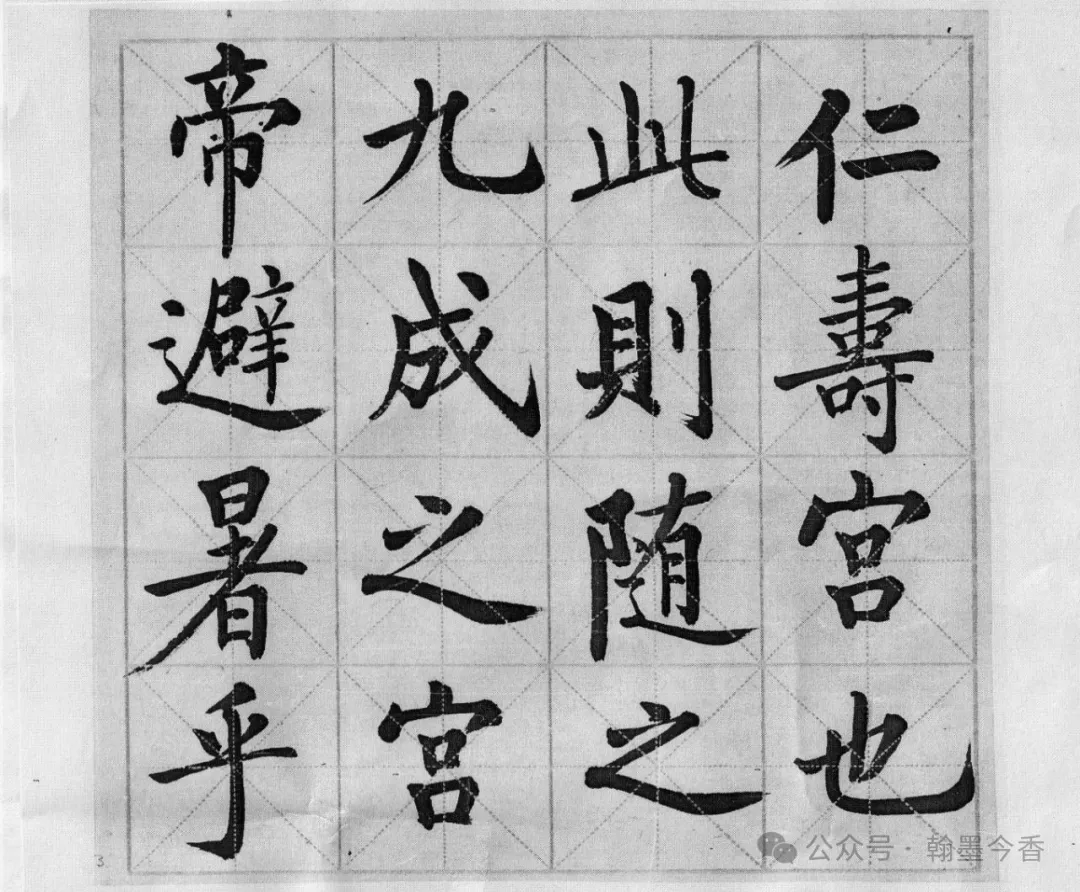 仁壽宫也
此則随之
九成之宫
帝避暑乎
3
公众号·翰墨今香